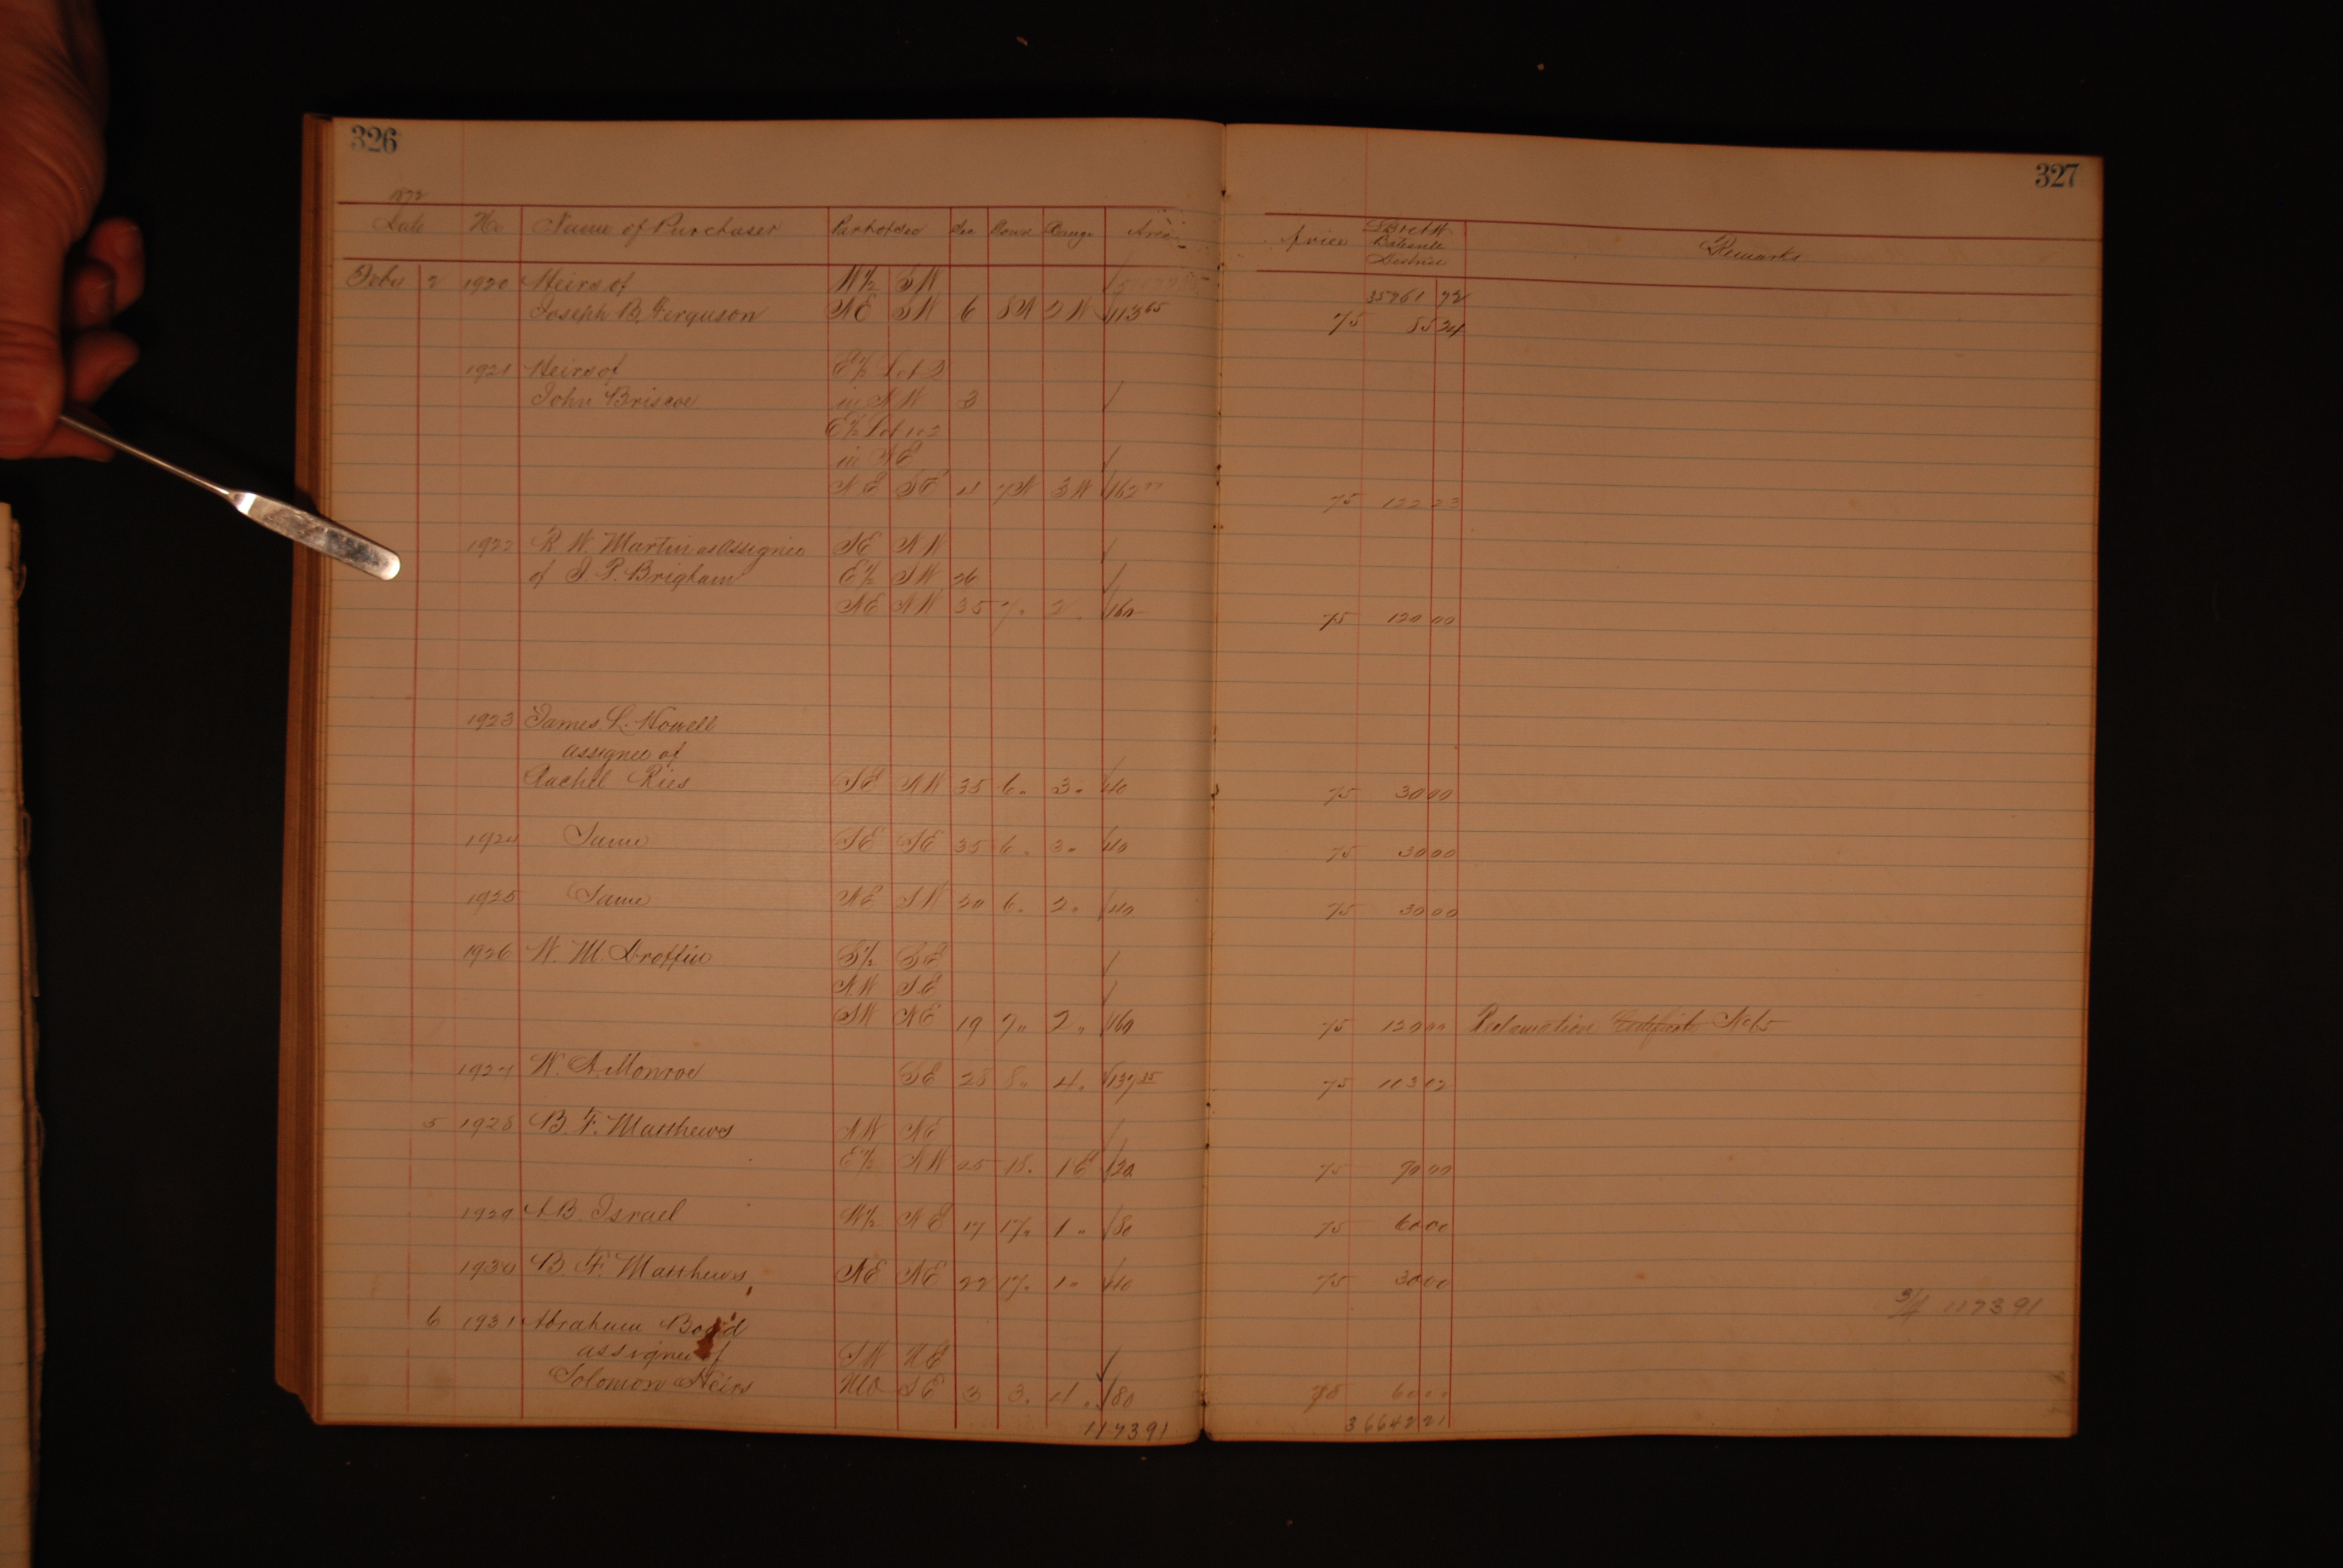 326
327
1872
Date No Name of Purchaser Part of Sec Sec Town Range Area Price District Remarks
Feby 2 1920 Heirs of W½ SW 35961 72
Joseph B. Ferguson NE SW 6 8N 2W 113 65 75 85 24
1921 Heirs of E½ Lot 2
John Briscoe in NW 3
E½ Lot 1 & 2
in NE
NE SE 4 7N 3W 162 75 122 23
1922 R. W. Martin as Assignee SE NW
of J. P. Brigham E½ SW 26
NE NW 35 7 " 2 " 160 75 120 00
1923 James L. Howell
assignee of
Rachel Ries SE NW 35 6 " 3 " 40 75 30 00
1924 Same SE SE 35 6 " 3 " 40 75 30 00
1925 Same NE SW 20 6 " 2 " 40 75 30 00
1926 W. M. S½ SE
NW SE
SW NE 19 7 " 2 " 160 75 120 00 Reclamation
1927 W. A. Monroe SE 28 8 " 4 " 137 35 75 113 02
5 1928 B. F. Matthews NW NE
E½ NW 25 18 " 1 E 120 75 90 00
1929 A. B. Israel W½ NE 17 17 " 1 " 80 75 60 00
1930 B. F. Matthews NE NE 22 17 " 1 " 40 75 30 00
1173 91
6 1931 Abraham Boyd
assignee of SW NE
Solomon Heirs NW SE 3 3 " 4 " 80 75 60 00
1173 91 36642 21